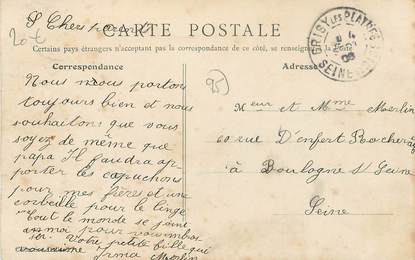 20 €
Chers parents
CARTE POSTALE
Certains pays étrangers n'acceptant pas la correspondance de ce côté, se renseigner à la Poste
Correspondance
Adresse
GRISY LES PLATRES
SEINE
95
Nous nous portons
toujours bien et nous
souhaitons que vous
soyez de même que
papa Il faudra ap
porter les capuchons
pour mes frères et une
corbeille pour le linge
Tout le monde se joint
a moi pour vous embras
ser. Votre petite fille qui
Irma Merlin
Meur et Mme Merlin
60 rue D'enfert Rochereau
à Boulogne s/ Seine
Seine